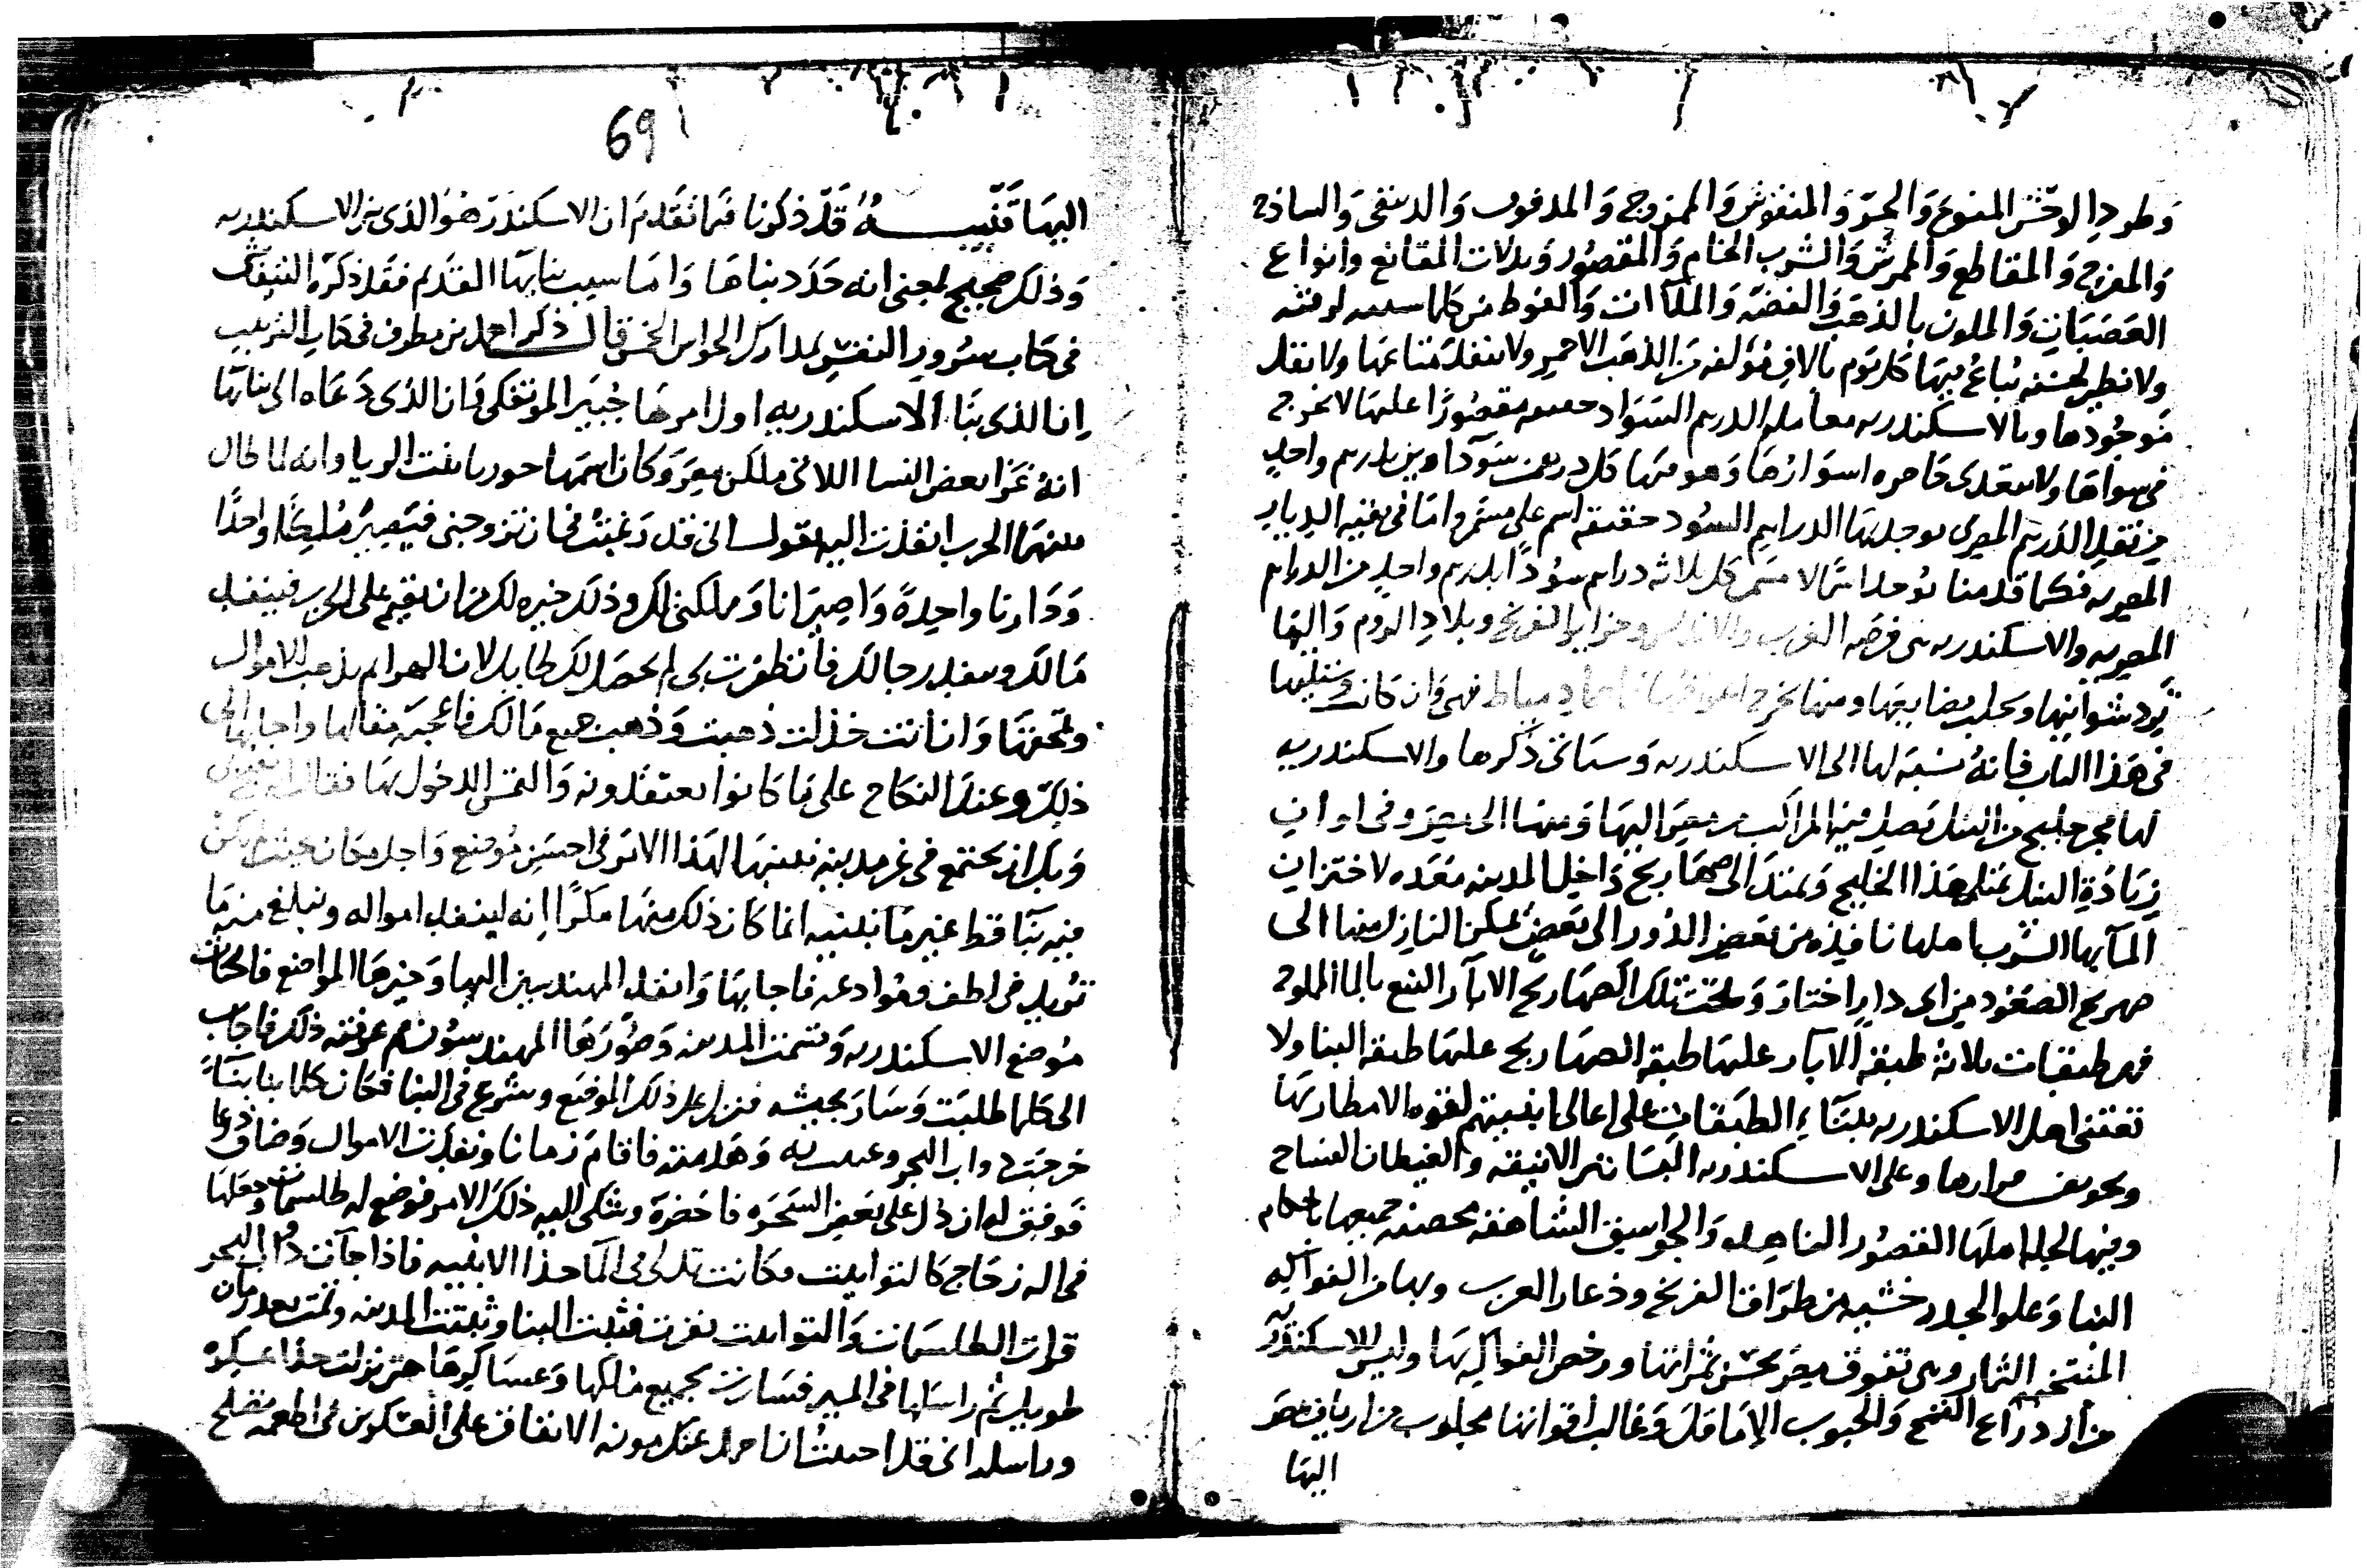 وطرد الوحش المنوع والحر والمنقوش والممزوج والمدفون والدبيقى والساذج
والمفرج والمقاطع والمرش والشرب الخام والمقصور وبدلات المقانع وانواع
العصبات والملون بالذهب والفضة والملاآت والفوط من كلما
ولا نظير لحسنه تباع فيها كل يوم بالاف مؤلفه من الذهب الاحمر ولا ينفد متاعها ولا يقل
موجودها وبالاسكندريه معامله الدرهم السواد مقصورا عليها لا يخرج
فى سواها ولا يتعدى حاصره اسوارها وهو منها كل درهمين سودا وبين بدرهم واحد
من نقد الدرهم المصرى يوجد بها الدراهم السود حقيقه اسم على مسمى واما فى بقيه الديار
المصريه فكما قدمنا يوجد اسما لا مسمى كل ثلاثه دراهم سودا بدرهم واحد من الدراهم
المصريه والاسكندريه هى فرضه الغرب والاندلس وجزاير الفرنج وبلاد الروم واليها
ترد شوانيها وتجلب بضايعها ومنها يخرج دمياط فهى وان كانت
فى هذا الباب فانه نسبه لها الى الاسكندريه وسياتى ذكرها والاسكندريه
لها مجرى خليج من النيل تصل فيه المراكب من مصر اليها ومنها الى مصر وفى اوان
زيادة النيل يمتلئ هذا الخليج ويمتد الى صهاريج داخل المدينه معده لاختزان
المآ بها الشرب اهلها نافيذه من بعض الدور الى بعض يمكن النازل منها الى
صهريج الصعود من اى دار اختار وتحت تلك الصهاريج الابآر النبع بالما المملوح
فهى طبقات ثلاثه طبقه الابآر عليها طبقه الصهاريج عليها طبقه البنا ولا
تعتنى اهل الاسكندريه ببنآء الطبقات على اعالى ابنيتهم لقوه الامطار بها
وعلى الاسكندريه البساتين الانيقه والغيطان الفساح
وفيها لجله اهلها القصور الناهده والجواسيق الشاهقه محصنه جميعها باحكام
البنا وعلو الجدر خشيه من طراق الفرنج وذعار العرب وبها من الفواكه
المنتخبه الثمار وهى تفوق مصر بحسن ثمراتها ورخص الفواكه بها وليس للاسكندريه
مزدراع القمح والحبوب الا ما قل وغالب اقواتها مجلوب من ارياف مصر
اليها
69
اليها تنبيه قد ذكرنا فيما تقدم ان الاسكندر هو الذى بنى الاسكندريه
وذلك صحيح لمعنى انه جدد بناها واما سبب بنايها القديم فقد ذكره التيفاشى
فى كتاب سرور النفس بمدارك الحواس الخمس قال ذكر احمد بن مطرف فى كتاب الترتيب
ان الذى بنا الاسكندريه اول امرها جبير الموتفكى وان الذى دعاه الى بنايها
انه غزا بعض النسا اللاتى ملكن مصر وكان اسمها حوريا بنت الريا وانه لما طال
بينهما الحرب انفذت اليه تقول انى قد رغبت فى ان تزوجنى فيصير ملكنا واحدا
ودارنا واحدة واصير انا وملكتى لك وذلك خير لك من ان تقيم على الحرب فينفد
مالك وينفد رجالك فان ظفرت بى لم يحصل لك طايل لان الهوايم يذهب الاموال
وتمحقها وان انت خذلت ذهبت وذهب جميع مالك فاعجبه مقالها واجابها الى
ذلك وعقد النكاح على ما كانوا يعتقدونه والتمس الدخول بها فقالت
وبك ان نجتمع فى غير مدينه تبنيها لهذا الامر فى احسن موضع واجل مكان حيث لم يكن
فيه بنآ قط غير ما تبنيه انما كان ذلك منها مكرا انه لينفد امواله وتبلغ منه ما
تريد فى لطف وموادعه فاجابها وانفذ المهندسين اليها وخيرها المواضع فاختارت
موضع الاسكندريه ورسمت المدينه وصورها المهندسون ثم عرفته ذلك فاجاب
الى كلما طلبت وسار بجيشه فنزل على ذلك الموضع وشرع فى البنا فكان كلما بنا بنآء
خرجت دواب البحر وعبثت به وهدمته فاقام زمانا ونفذت الاموال وضاق ذرعا
فوفق له ان دل على بعض السحره فاحضره وشكى اليه ذلك الامر فوضع له طلسمات وجعلها
فى اله زجاج كالتوابيت فكانت تلك فى المآ حذا الابنيه فاذا جآت دواب البحر
فرات الطلسمات والتوابيت نفرت فثبت البنا وثبتت المدينه وتمت بعد زمان
طويل ثم راسلها فى المسير فسارت بجميع مالها وعساكرها حتى نزلت حذا عسكره
وراسلته انى قد احببت ان احمل عنك مونه الانفاق على العسكرين فى اطعمه تصلح